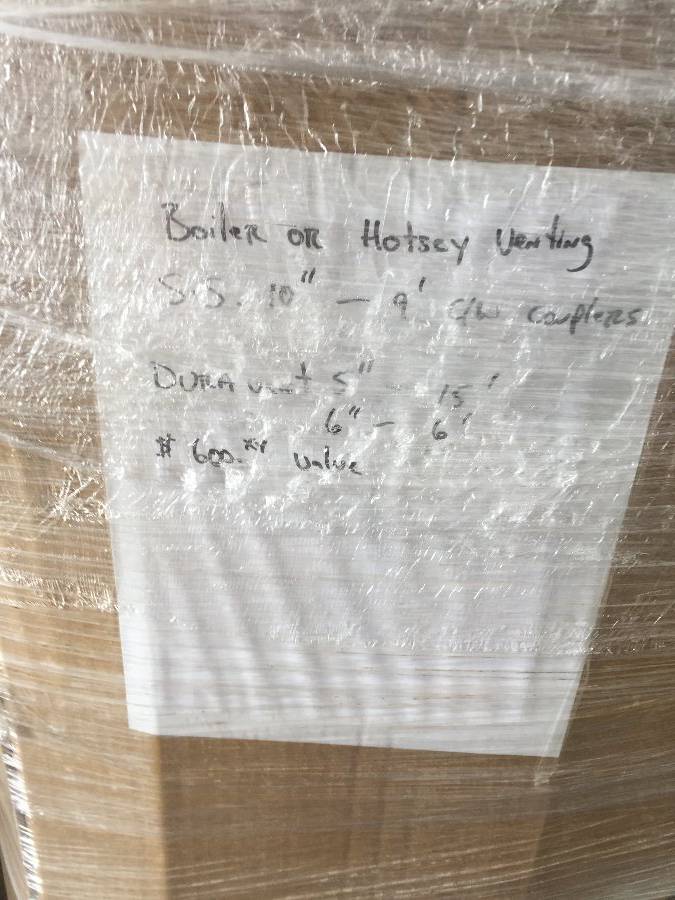 Boiler or Hotsey Venting
S.S. 10" — 9' c/w couplers
DURA vent 5" 15'
6" — 6'
$ 600.xx value